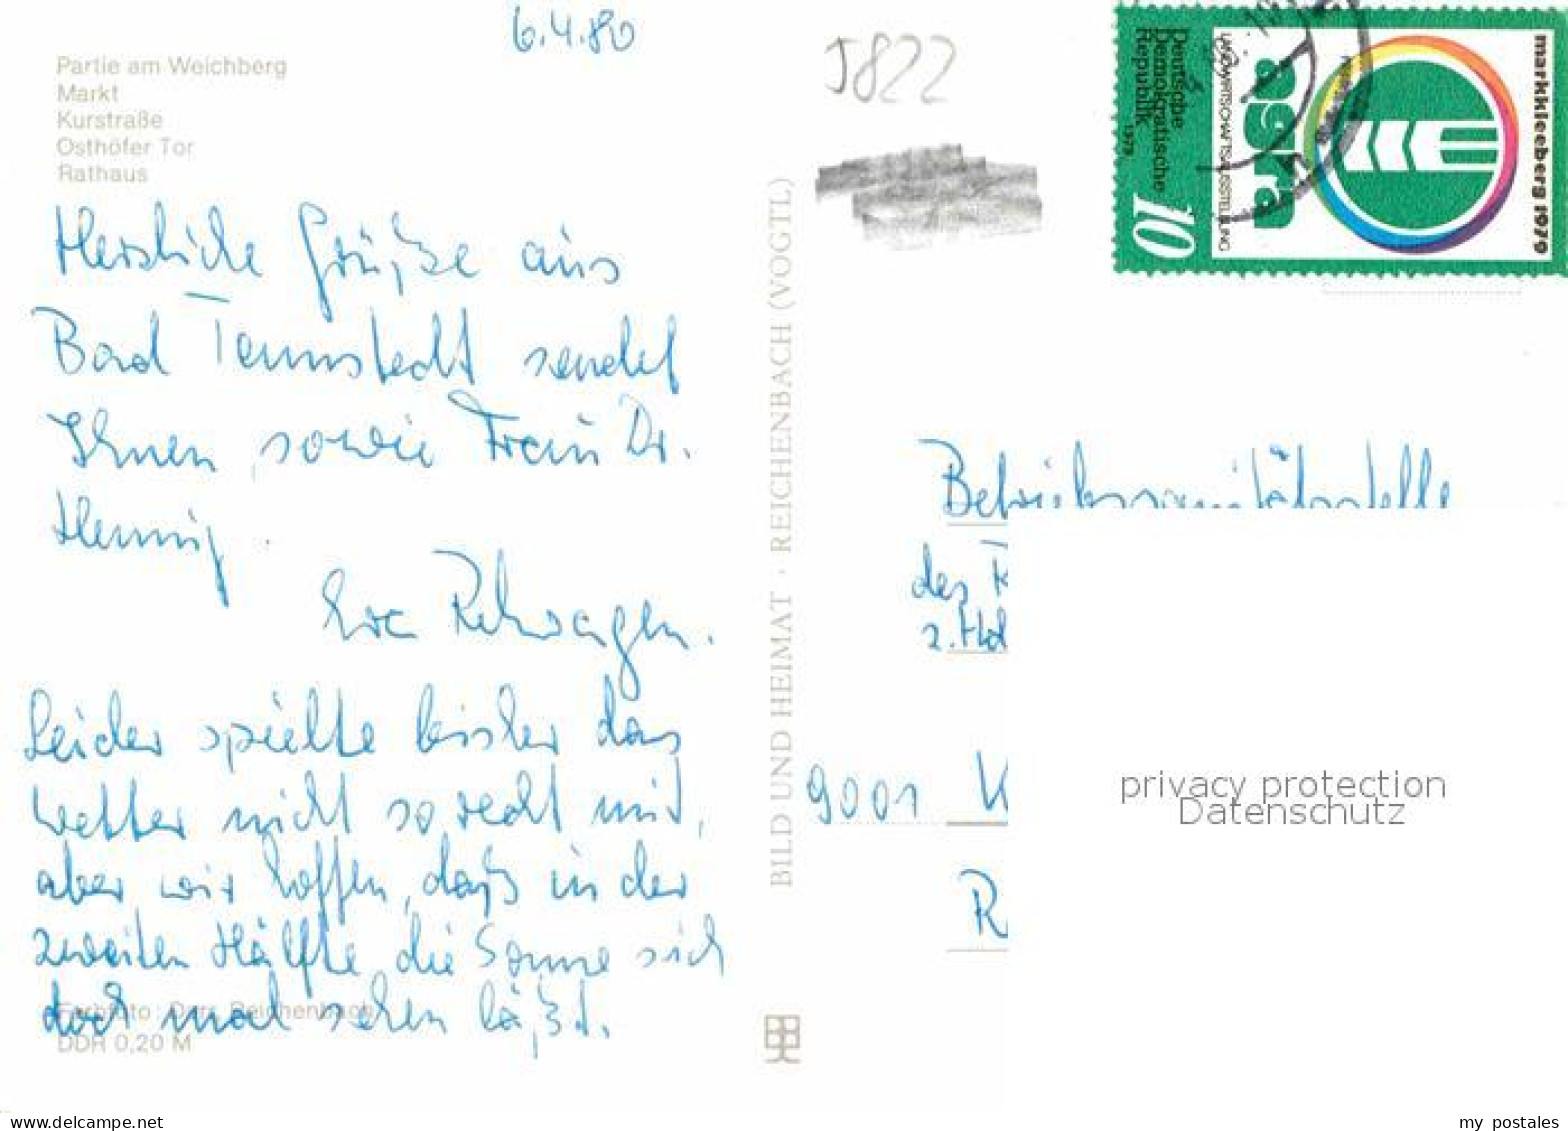 6.4.80
Partie am Weichberg
Markt
Kurstraße
Osthöfer Tor
Rathaus
Herzliche Grüße aus
Bad Tennstedt sendet
Ihnen sowie Frau Dr.
Hennig
Eva Rehwagen.
Leider spielte bisher das
Wetter nicht so recht mit,
aber wir hoffen, daß in der
zweiten Hälfte die Sonne sich
doch mal sehen läßt.
Farbfoto: Darr, Reichenbach
DDR 0,20 M
BILD UND HEIMAT · REICHENBACH (VOGTL)
J822
Deutsche
Demokratische
Republik
1979
10
LANDWIRTSCHAFTSAUSSTELLUNG
agra
markkleeberg 1979
Betriebssanitätsstelle
des
z. Hd
9001 K
R
privacy protection
Datenschutz
www.delcampe.net
my_postales